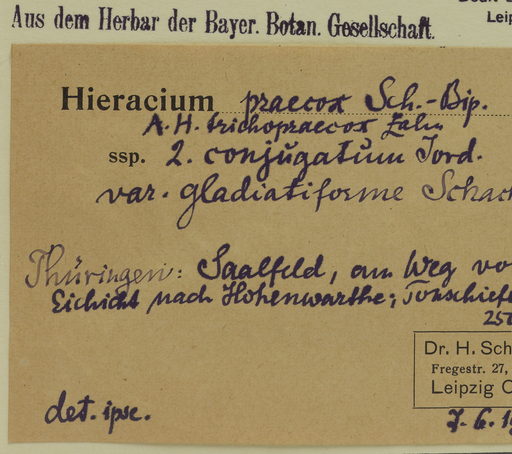 Leip
Aus dem Herbar der Bayer. Botan. Gesellschaft.
Hieracium praecox Sch.-Bip.
A. H. trichopraecox Zahn
ssp. 2. conjugatum Jord.
var. gladiatiforme Schack
Thüringen: Saalfeld, am Weg vo
Eichicht nach Hohenwarthe; Tonschief
250
Dr. H. Sch
Fregestr. 27,
Leipzig C
det. ipse.
7. 6. 19